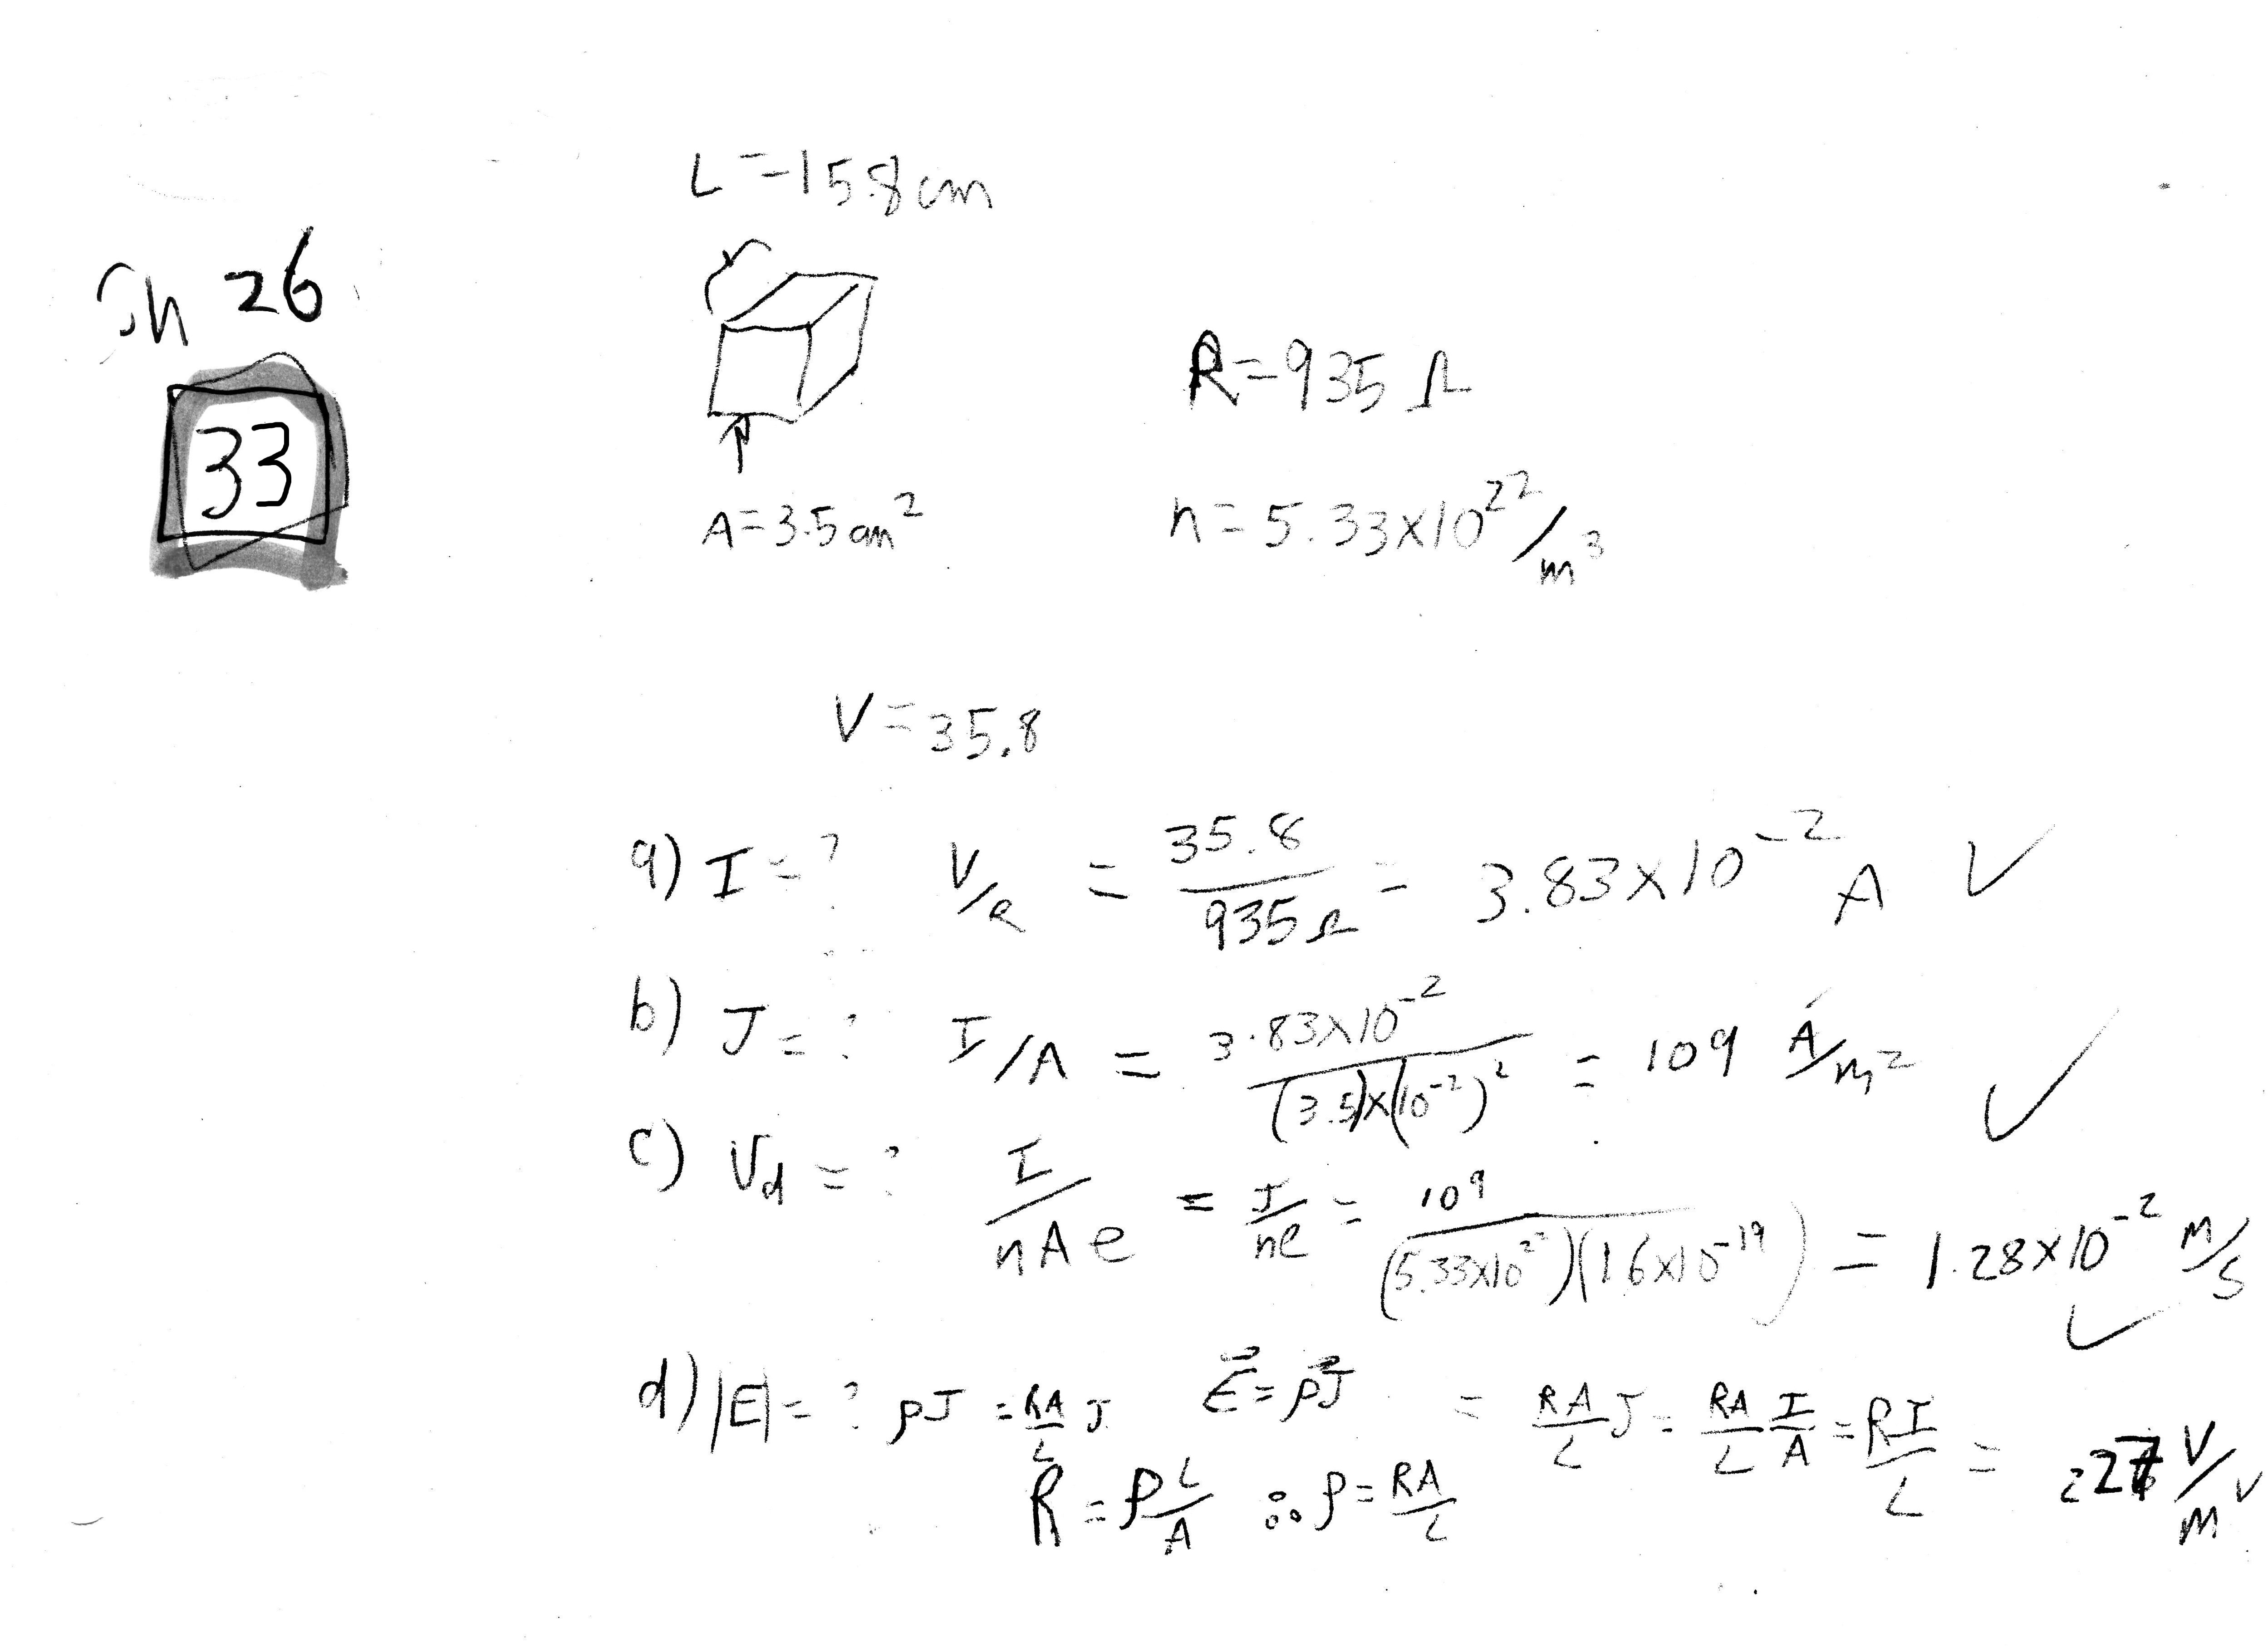 L = 15.8 cm
Ch 26
33
R = 935 Ω
A = 3.5 cm²
n = 5.33×10²² / m³
V = 35.8
a) I = ? V/R = 35.8 / 935 Ω = 3.83×10⁻² A ✓
b) J = ? I/A = 3.83×10⁻² / (3.5)×(10⁻²)² = 109 A/m² ✓
c) Vd = ? I / nAe = J / ne = 109 / (5.33×10²²)(1.6×10⁻¹⁹) = 1.28×10⁻² m/s ✓
d) |E| = ? ρJ = RA/L J E⃗ = ρJ⃗ = RA/L J = RA/L I/A = RI/L = 227 V/m ✓
R = ρ L/A ∴ ρ = RA/L